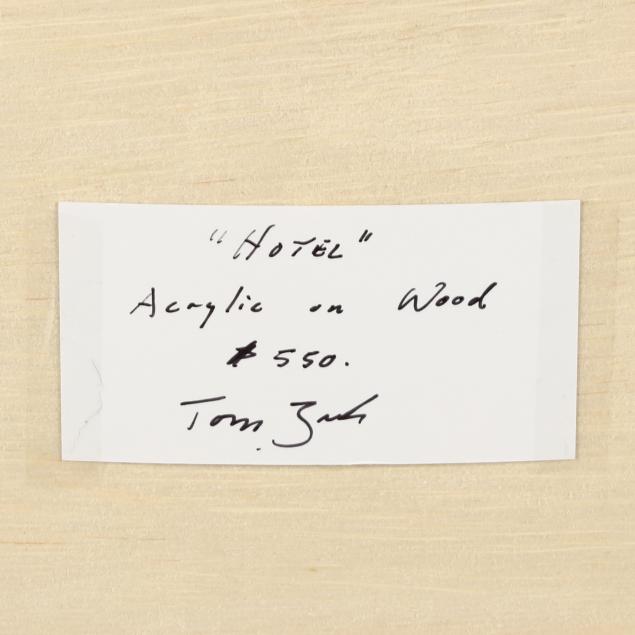 "HOTEL"
Acrylic on Wood
$550.
Tom